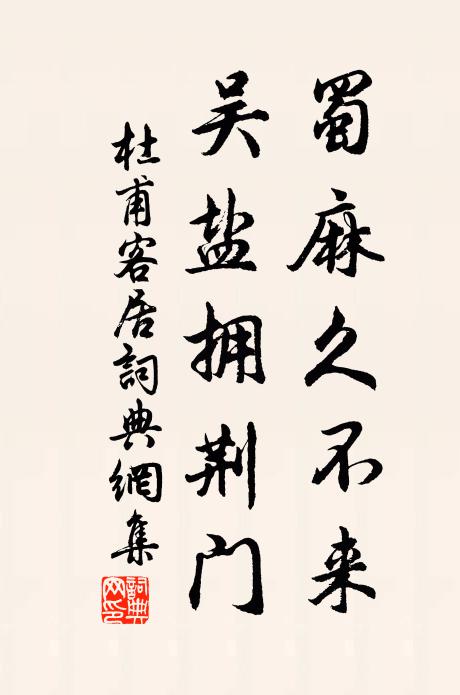 蜀麻久不来
吴盐拥荆门
杜甫客居詞典網集
詞典网印